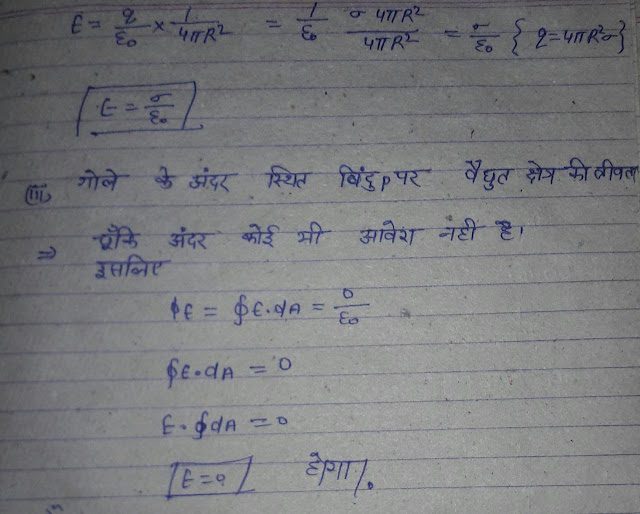 E = q/ε₀ × 1/4πR² = 1/ε₀ σ 4πR²/4πR² = σ/ε₀ { q = 4πR²σ }
E = σ/ε₀
(iii) गोले के अंदर स्थित बिंदु P पर वैधुत क्षेत्र की तीव्रता
⇒ चूँकि अंदर कोई भी आवेश नही है।
इसलिए
ϕE = ∮E.dA = 0/ε₀
∮E.dA = 0
E.∮dA = 0
E = 0 होगा।